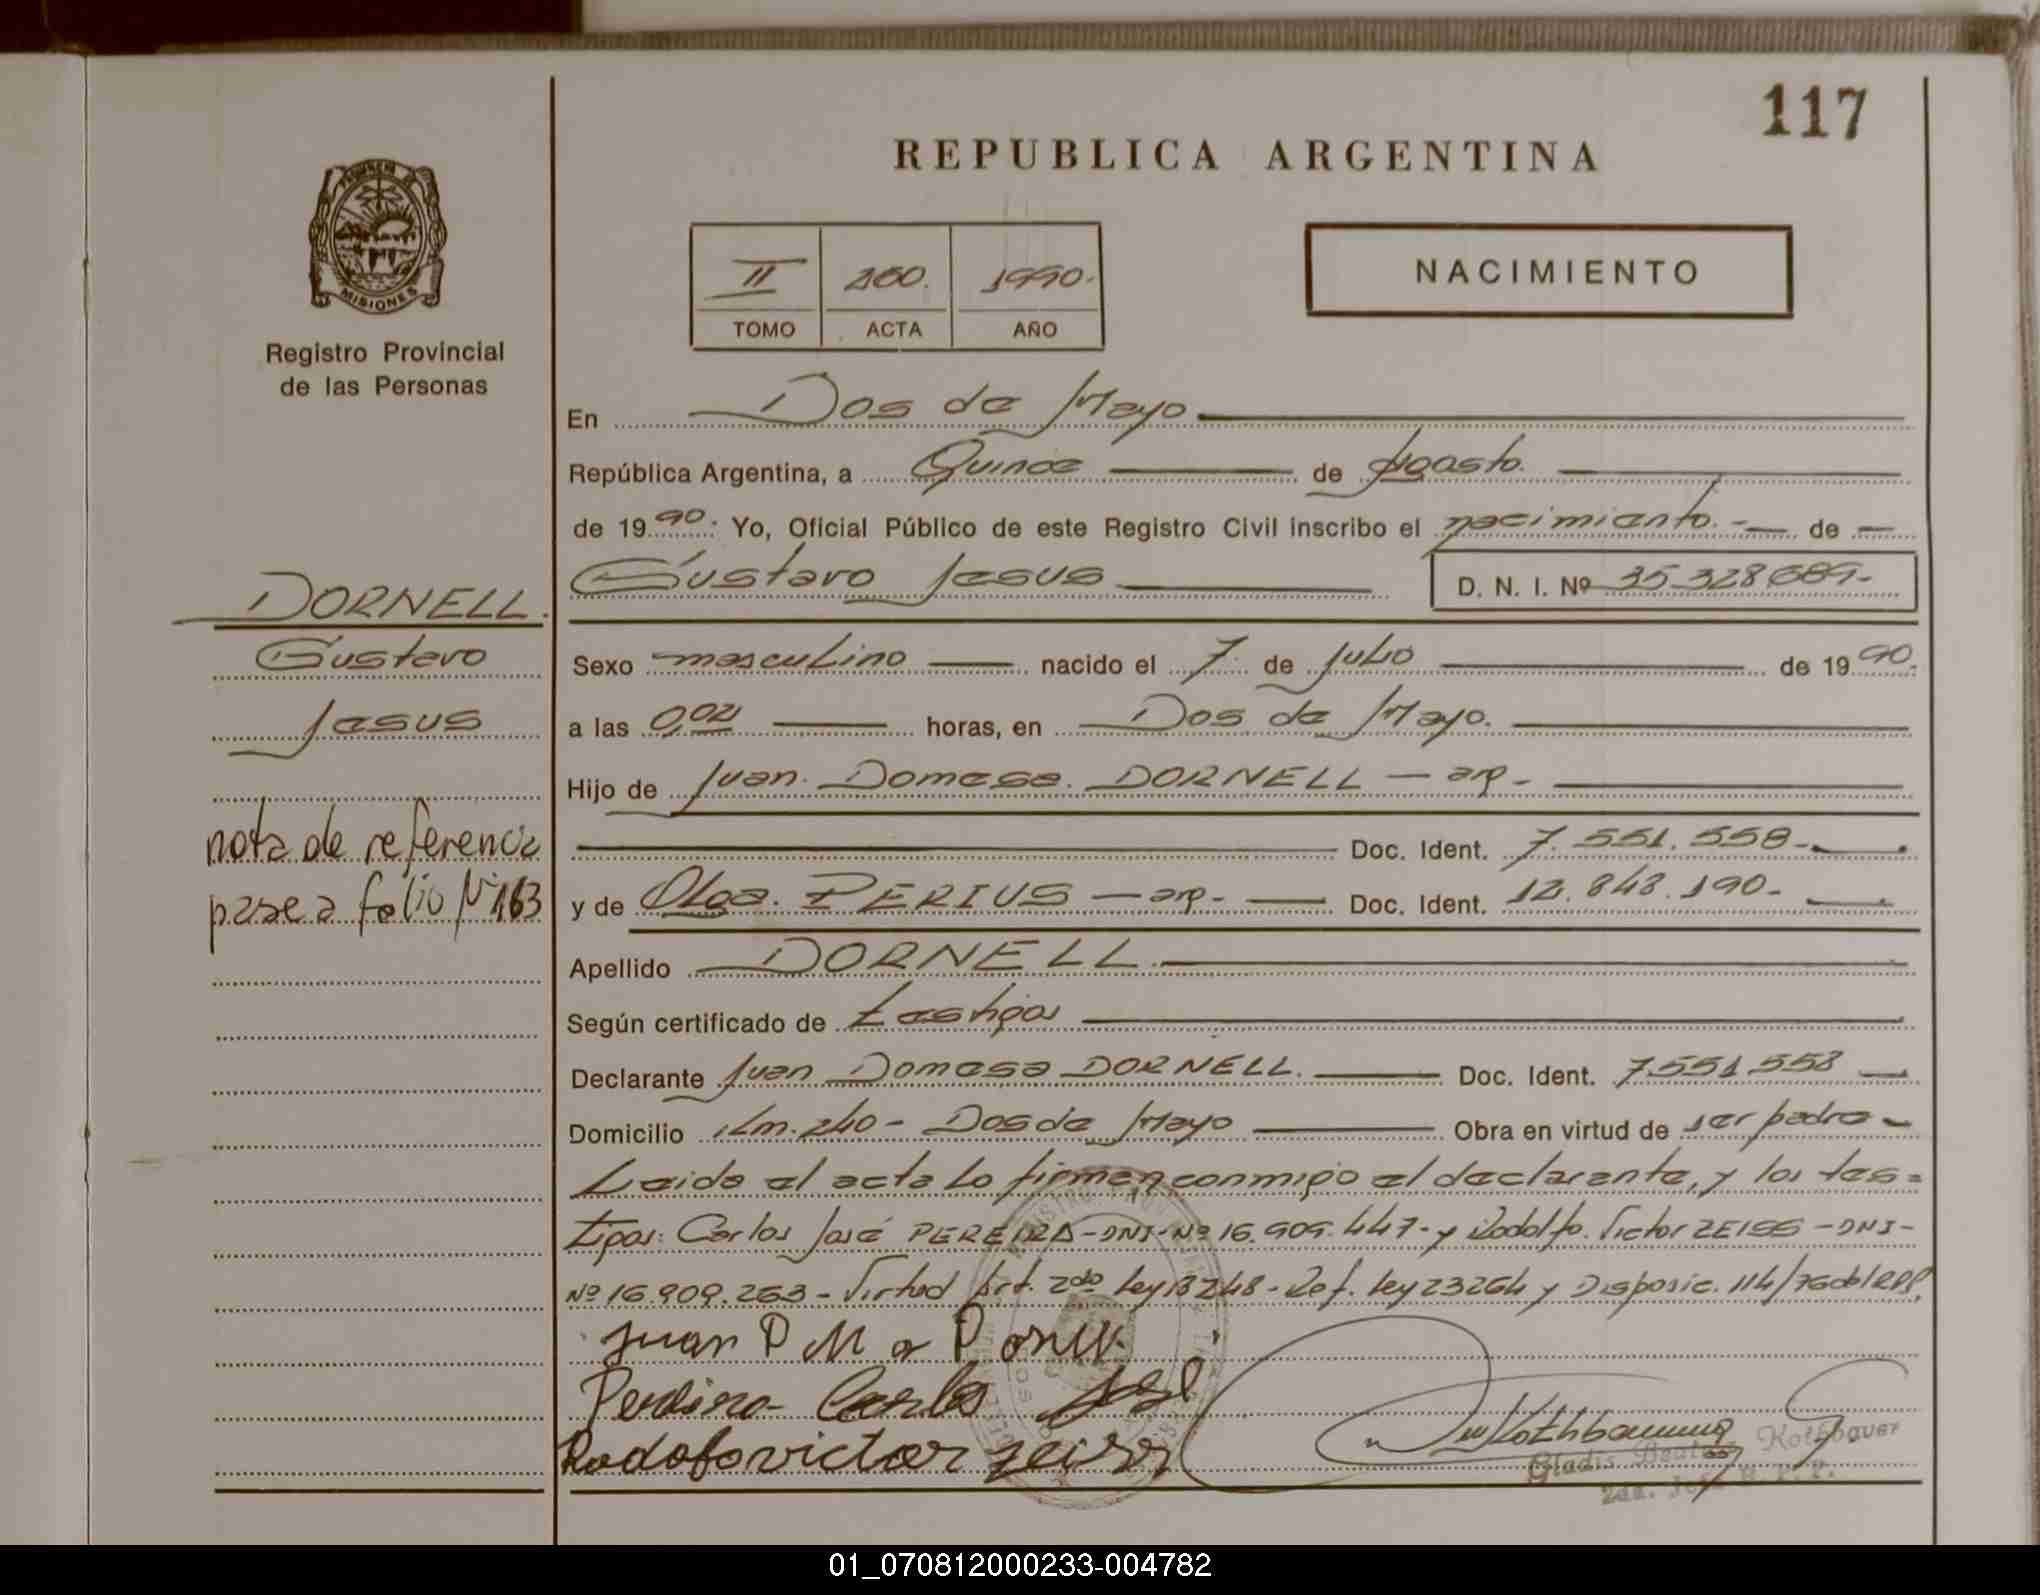 117
REPUBLICA ARGENTINA
PROVINCIA DE
MISIONES
Registro Provincial
de las Personas
II 260. 1990.
TOMO ACTA AÑO
NACIMIENTO
En Dos de Mayo
República Argentina, a Quince de Agosto.
de 1990: Yo, Oficial Público de este Registro Civil inscribo el nacimiento.- de
Gustavo Jesus D. N. I. Nº 35.328.689-
DORNELL.
Gustavo
Jesus
nota de referencia
pase a folio Nº 163
Sexo masculino nacido el 7 de Julio de 1990.
a las 0,02 horas, en Dos de Mayo.
Hijo de Juan Domesa DORNELL - arg -
Doc. Ident. 7.551.558-
y de Olga PERIUS - arg - Doc. Ident. 12.843.190-
Apellido DORNELL.
Según certificado de testigos
Declarante Juan Domesa DORNELL. Doc. Ident. 7.551.558
Domicilio Km. 240 - Dos de Mayo Obra en virtud de ser padre
Leida el acta lo firman conmigo el declarante, y los tes=
tigos: Carlos José PEREIRA-DNI-Nº 16.909.447- y Rodolfo Victor ZEISS -DNI-
Nº 16.909.263 - Virtud Art. 2do Ley 18248 - Ref. Ley 23264 y Disposic. 114/76 del RPP.
Juan
Pereira Carlos José
Rodolfo victor zeiss
Kothbauer
Gladis Beatriz Kothbauer
2da. Jefe R. P. P.
01_070812000233-004782